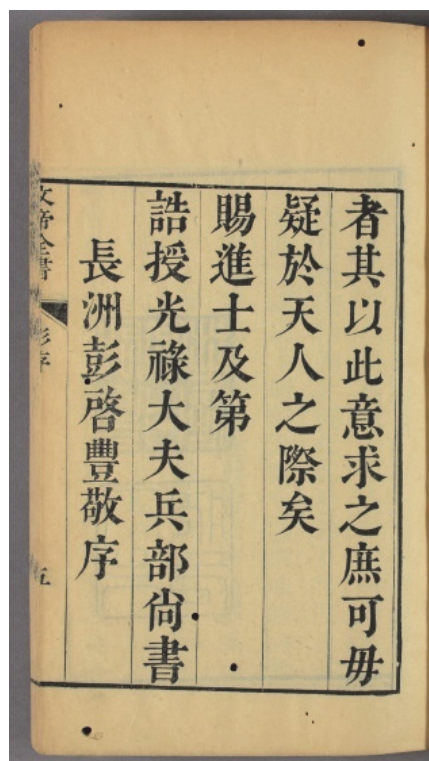 者其以此意求之庶可毋
疑於天人之際矣
賜進士及第
誥授光祿大夫兵部尙書
長洲彭啓豐敬序
文帝全書
彭序
五